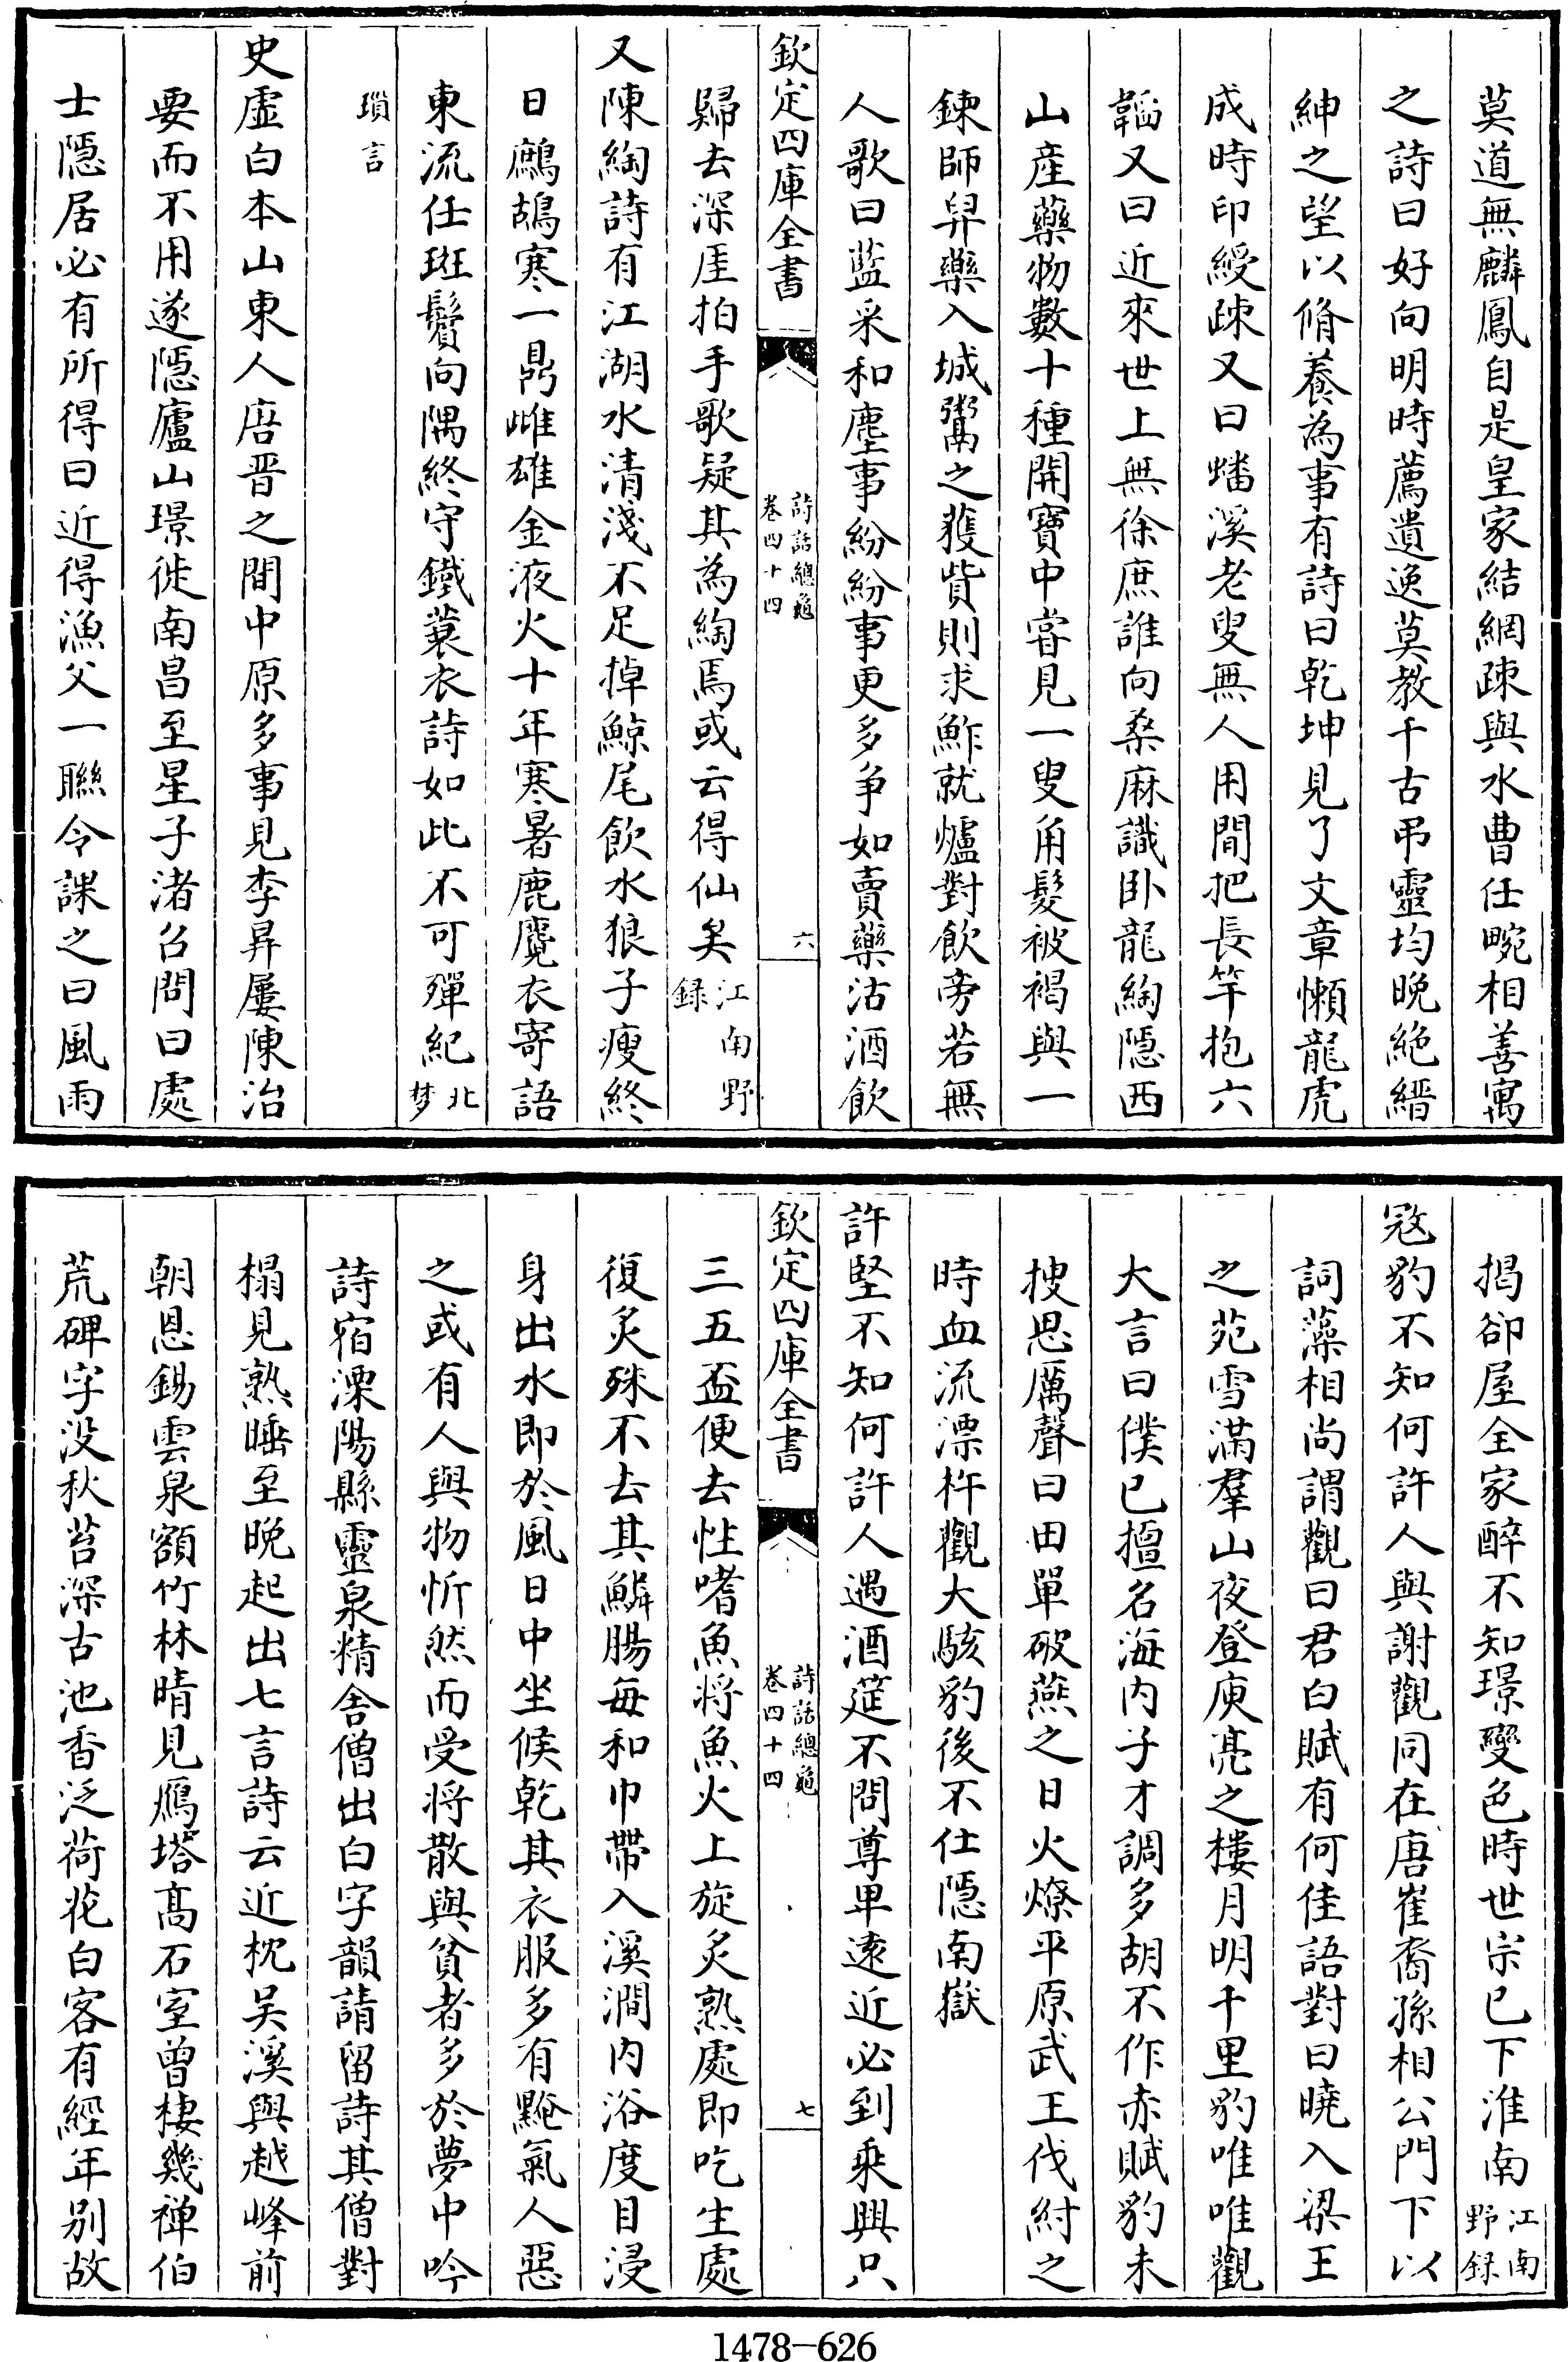 莫道無麟鳳自是皇家結網疎與水曹任畹相善寓
之詩曰好向明時薦遺逸莫教千古弔靈均晚絶縉
紳之望以脩養為事有詩曰乾坤見了文章懶龍虎
成時印綬疎又曰蟠溪老叟無人用閒把長竿抱六
韜又曰近來世上無徐庶誰向桑麻識卧龍綯隠西
山産藥物數十種開寶中嘗見一叟角髮被褐與一
錬師舁藥入城鬻之獲貲則求鮓就爐對飲旁若無
人歌曰藍采和塵事紛紛事更多争如賣藥沽酒飲
欽定四庫全書
詩話總龜
卷四十四
六
歸去深厓拍手歌疑其為綯焉或云得仙矣江南野
録
又陳綯詩有江湖水清淺不足掉鯨尾飲水狼子瘦終
日鷓鴣寒一鼎雌雄金液火十年寒暑鹿麑衣寄語
東流任斑鬢向隅終守鐵蓑衣詩如此不可殫紀北
梦
瑣言
史虚白本山東人唐晋之間中原多事見李昇屢陳治
要而不用遂隠廬山璟徙南昌至星子渚召問曰處
士隠居必有所得曰近得漁父一聯令課之曰風雨
揭卻屋全家醉不知璟變色時世宗已下淮南江南
野録
冦豹不知何許人與謝觀同在唐崔裔孫相公門下以
詞藻相尚謂觀曰君白賦有何佳語對曰曉入梁王
之苑雪滿羣山夜登庾亮之樓月明千里豹唯唯觀
大言曰僕已擅名海内子才調多胡不作赤賦豹未
捜思厲聲曰田單破燕之日火燎平原武王伐紂之
時血流漂杵觀大駭豹後不仕隠南嶽
許堅不知何許人遇酒筵不問尊卑遠近必到乘興只
欽定四庫全書
詩話總龜
卷四十四
七
三五盃便去性嗜魚将魚火上旋炙熟處即吃生處
復炙殊不去其鱗腸每和巾帶入溪澗内浴度目浸
身出水即於風日中坐候乾其衣服多有黤氣人惡
之或有人與物忻然而受将散與貧者多於夢中吟
詩宿溧陽縣靈泉精舍僧出白字韻請留詩其僧對
榻見熟睡至晚起出七言詩云近枕吴溪與越峰前
朝恩錫雲泉額竹林晴見鴈塔髙石室曾棲幾禅伯
荒碑字没秋苔深古池香泛荷花白客有經年别故
1478-626